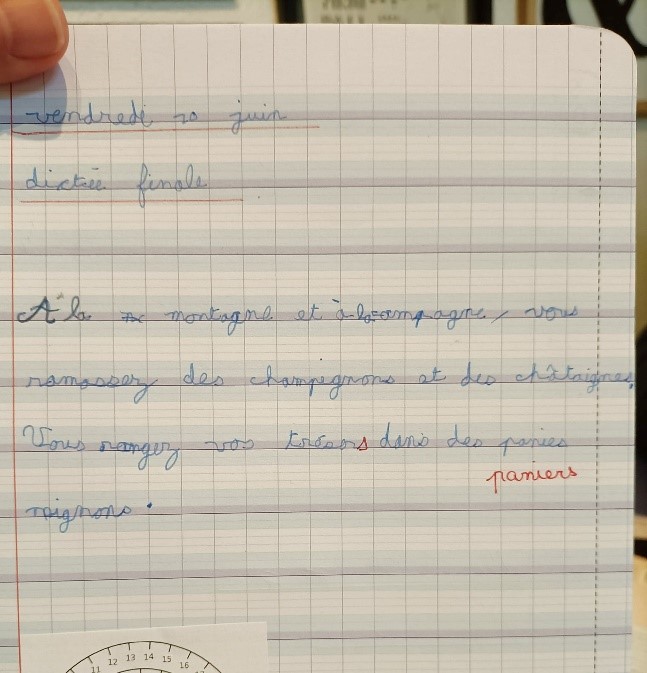 vendredi 20 juin
dictée finale
A la montagne et à la campagne, vous
ramassez des champignons et des châtaignes.
Vous rangez vos trésors dans des panies
paniers
mignons.
11 12 13 14 15 16